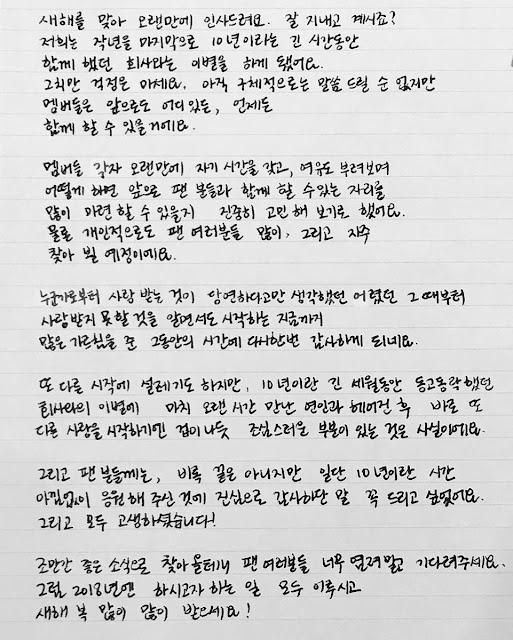 새해를 맞아 오랜만에 인사드려요. 잘 지내고 계시죠?
저희는 작년을 마지막으로 10년이라는 긴 시간동안
함께 했던 회사와는 이별을 하게 됐어요.
그치만 걱정은 마세요. 아직 구체적으로는 말씀 드릴 순 없지만
멤버들은 앞으로도 어디있든, 언제든
함께 할 수 있을거에요.
멤버들 각자 오랜만에 자기 시간을 갖고, 여유도 부려보며
어떻게 하면 앞으로 팬 분들과 함께 할 수 있는 자리를
많이 마련 할 수 있을지 진중히 고민 해 보기로 했어요.
물론 개인적으로도 팬 여러분들 많이, 그리고 자주
찾아 뵐 예정이에요.
누군가로부터 사랑 받는 것이 당연하다고만 생각했던 어렸던 그 때부터
사랑받지 못할 것을 알면서도 시작하는 지금까지
많은 가르침을 준 그동안의 시간에 다시한번 감사하게 되네요.
또 다른 시작에 설레기도 하지만, 10년이란 긴 세월동안 동고동락 했던
회사와의 이별에 마치 오랜 시간 만난 연인과 헤어진 후 바로 또
다른 사랑을 시작하기엔 겁이 나듯 조심스러운 부분이 있는 것은 사실이에요.
그리고 팬 분들께는, 비록 끝은 아니지만 일단 10년이란 시간
아낌없이 응원해 주신 것에 진심으로 감사하단 말 꼭 드리고 싶었어요.
그리고 모두 고생하셨습니다!
조만간 좋은 소식으로 찾아 올테니 팬 여러분들 너무 염려 말고 기다려주세요.
그럼 2018년엔 하시고자 하는 일 모두 이루시고
새해 복 많이 많이 받으세요!